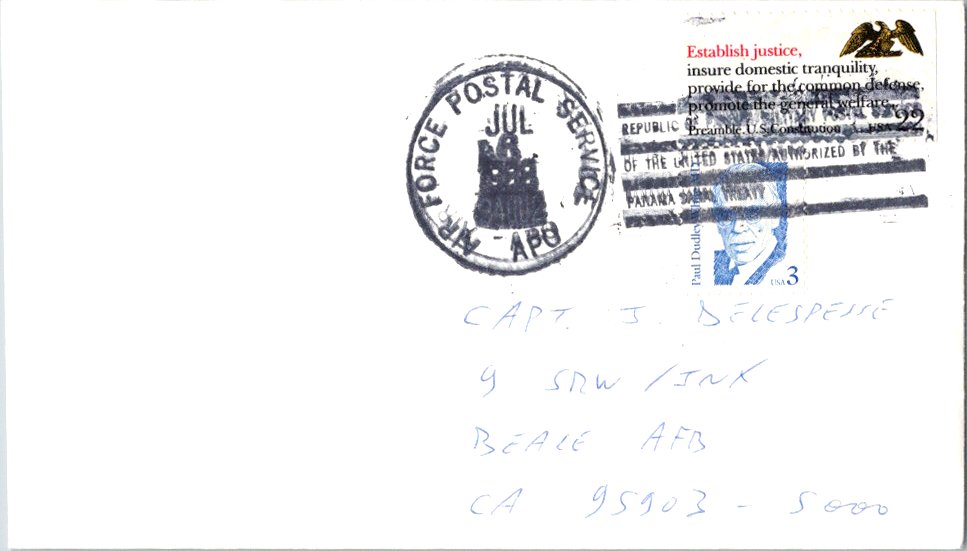 Establish justice,
insure domestic tranquility,
provide for the common defense,
promote the general welfare,
Preamble, U.S. Constitution USA 22
AIR FORCE POSTAL SERVICE
JUL
8
APO
REPUBLIC
OF THE UNITED STATES AUTHORIZED BY THE
PANAMA CANAL TREATY
Paul Dudley
USA 3
CAPT. J. DELESPESSE
9 SRW /INX
BEALE AFB
CA 95903 - 5000